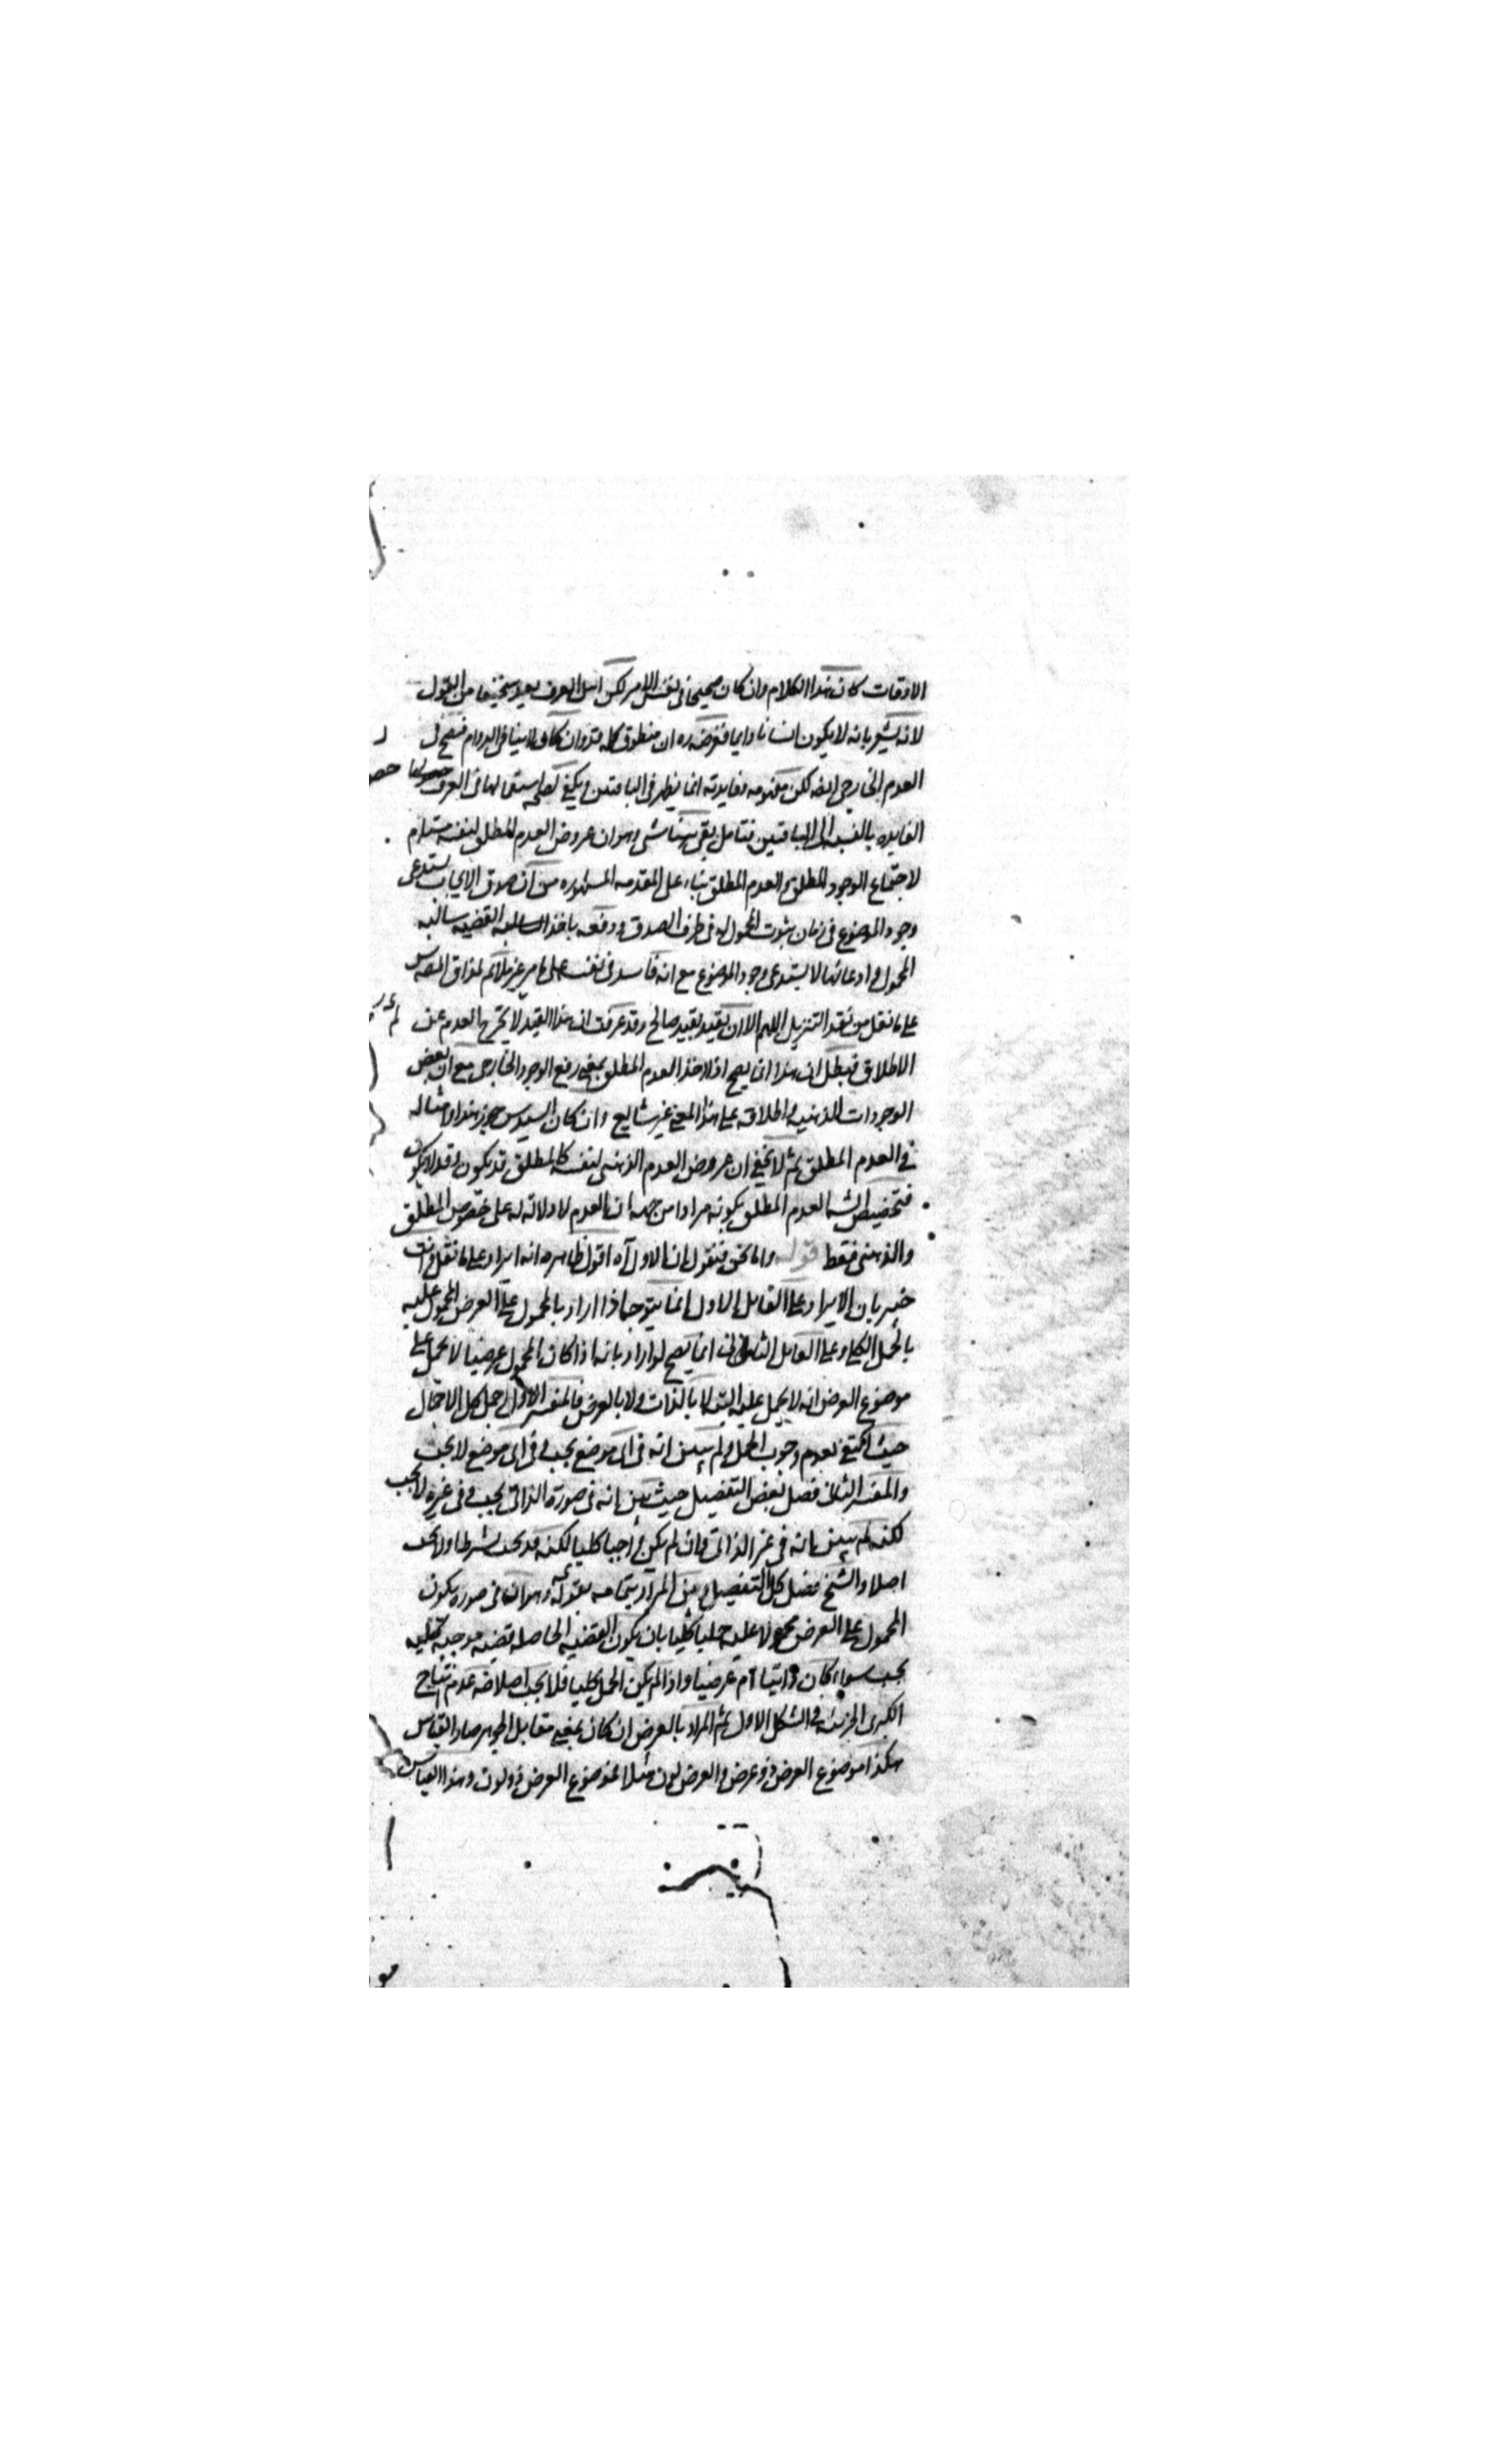 الاوقات كان هذا الكلام وان كان صحيحا في نفس الامر لكن اهل العرف يعد سخيفا من القول
لانه يشعر بانه لا يكون انسانا دايما فغرضه ره ان منطوق كلمة قد وان كان لا ينافي الدوام فيصح في
العدم الخارجي ايضا لكن مفهومه وفايدته انما يظهر في الباقيتين ويكفي لصحة استعمالها في العرف
الفايده بالنسبه الى الباقيتين فتامل بقي هنا شئ وهو ان عروض العدم المطلق لنفسه مستلزم
لاجتماع الوجود المطلق والعدم المطلق بناء على المقدمه المشهوره من ان صدق الايجاب يستدعي
وجود الموضوع في زمان ثبوت المحمول له في ظرف الصدق ودفعه باخذ القضيه سالبه
المحمول وادعا انها لا يستدعي وجود الموضوع مع انه فاسد في نفسه على ما مر غير ملائم لمذاق
على ما نقل من نقد التنزيل اللهم الا ان يقيد بقيد صالح وقد عرفت ان هذا القيد لا يخرج العدم عن
الاطلاق فبطل ان هذا انما يصح اذا اخذ العدم المطلق بمعنى رفع الوجود الخارجي مع ان بعض
الوجودات الذهنيه واطلاقه على هذا المعنى غير شايع وان كان السيد س جوز هذا وامثاله
في العدم المطلق ثم لا يخفى ان عروض العدم الذهني لنفسه كالمطلق قد يكون وقد لا يكون
فتخصيص الشه العدم المطلق بكونه مرادا من جهه ان العدم لا دلاله له على خصوص المطلق
والذهني فقط قوله واما نحن فنقول ان الاول آه اقول ظاهره انه ايراد على ما نقل وانت
خبير بان الايراد على القايل الاول انما يتوجه اذا اراد بالمحمول على العرض المحمول عليه
بالحمل الكلي وعلى القايل الثاني انما يصح لو اراد بانه اذا كان المحمول عرضيا لا يحمل على
موضوع العرض انه لا يحمل عليه البته لا بالذات ولا بالعرض فالمفسر الاول اجمل كل الاجمال
حيث اكتفى بعدم وجوب الحمل ولم يبين انه في اى موضع يجب وفي اى موضع لا يجب
والمفسر الثاني فصل بعض التفصيل حيث بين انه في صورة الذاتي يجب وفي غيره لا يجب
لكنه لم يبين انه في غير الذاتي وان لم يكن واجبا كليا لكنه قد يجب بشرط وقد لا يجب
اصلا والشيخ فصل كل التفصيل وبين المراد بتمامه بقوله وهو انه في صوره يكون
المحمول على العرض محمولا عليه حمليا كليا بان يكون القضيه الحاصله قضيه موجبه كليه
يجب سواء كان ذاتيا ام عرضيا واذا لم يكن الحمل كليا فلا يجب اصلا ضه عدم انتاج
الكبرى الجزئيه في الشكل الاول ثم المراد بالعرض ان كان بمعنى مقابل الجوهر صار القياس
هكذا موضوع العرض ذو عرض والعرض لون مثلا فموضوع العرض ذو لون وهذا القياس